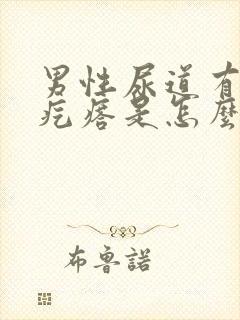 男性尿道有
疙瘩是怎麼
布魯諾